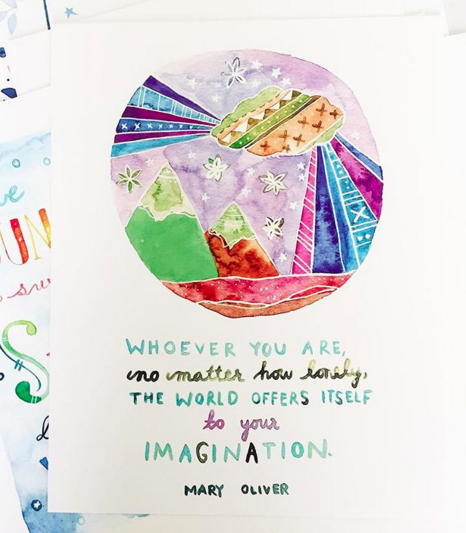 WHOEVER YOU ARE,
no matter how lonely,
THE WORLD OFFERS ITSELF
to your
IMAGINATION.
MARY OLIVER